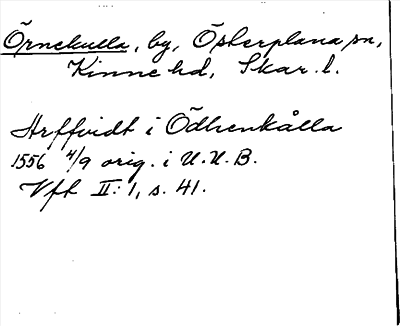 Örnekulla, by, Österplana sn,
Kinne hd, Skar. l.
Arffvidt i Ödhenkålla
1556 4/9 orig. i U.U.B.
Vft II:1, s. 41.